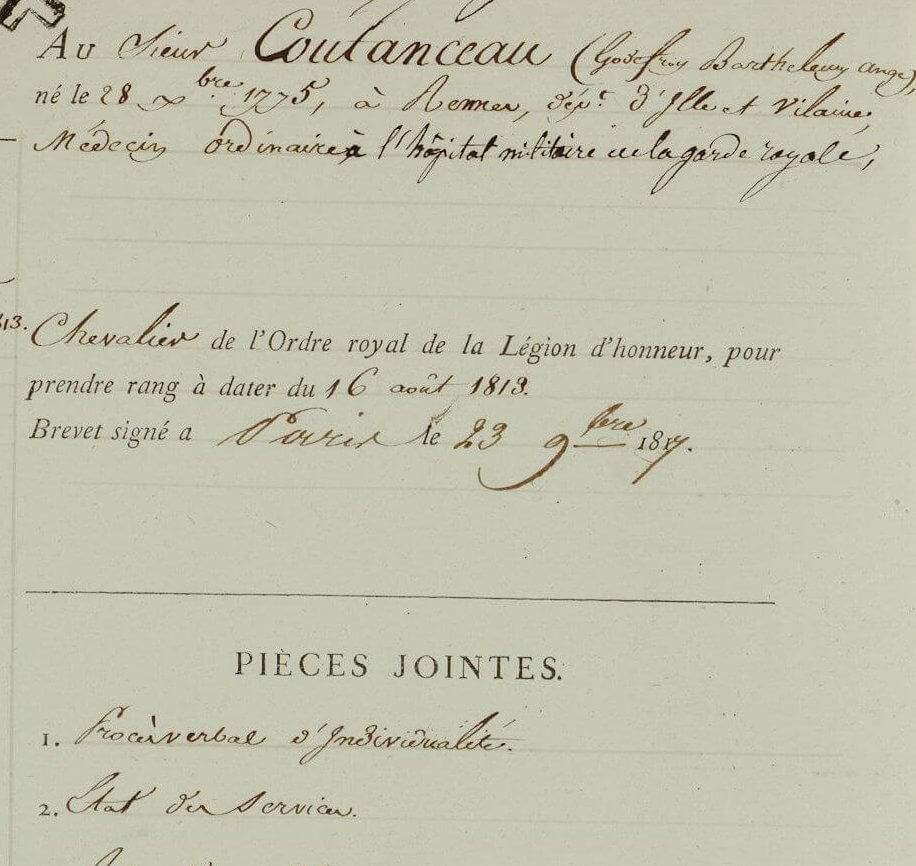 Au Sieur Coutanceau (Godefroy Barthelemy ange),
né le 28 Xbre 1775, à Rennes, dépt d'Ille et Vilaine,
Médecin ordinaire à l'hôpital militaire de la garde royale,
13. Chevalier de l'Ordre royal de la Légion d'honneur, pour
prendre rang à dater du 16 août 1813.
Brevet signé a Paris le 23 9bre 1817.
PIÈCES JOINTES.
1. Procès verbal d'Individualité.
2. Etat des Services.